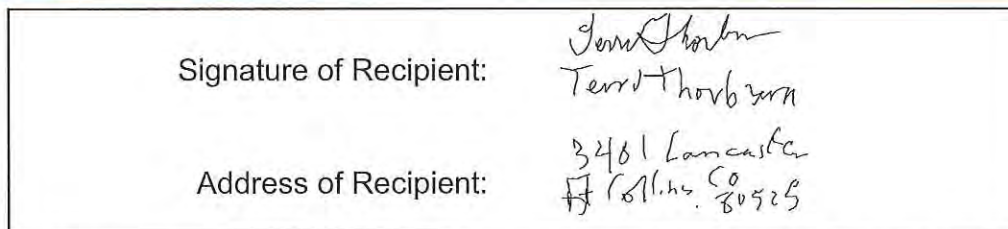 Signature of Recipient:
Terri Thorburn
Terri Thorburn
Address of Recipient:
3401 Lancaster
Ft Collins. Co
80525